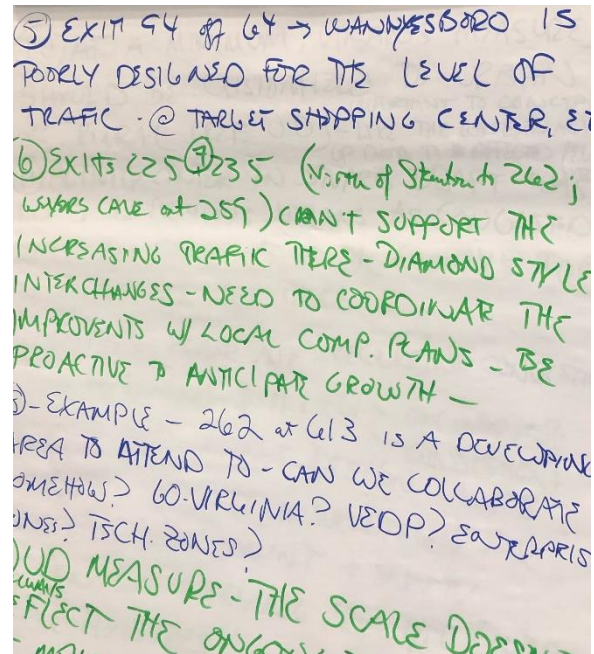 ⑤ EXIT 94 of 64 → WANNYESBORO IS
POORLY DESIGNED FOR THE LEVEL OF
TRAFIC @ TARGET SHOPPING CENTER, ET
⑥ EXITS 225 ⑦ 235 (North of Staunton to 262;
WEYERS CAVE at 259) CAN'T SUPPORT THE
INCREASING TRAFIC THERE - DIAMOND STYLE
INTERCHANGES - NEED TO COORDINATE THE
IMPROVENTS W/ LOCAL COMP. PLANS - BE
PROACTIVE TO ANTICIPATE GROWTH -
- EXAMPLE - 262 at 613 IS A DEVELOPING
AREA TO ATTEND TO - CAN WE COLLABORATE
OMEHOW? GO-VIRGINIA? VEDP? ENTERPRIS
ONES? TECH. ZONES?
UD MEASURE - THE SCALE DOESN
ALWAYS
EFLECT THE